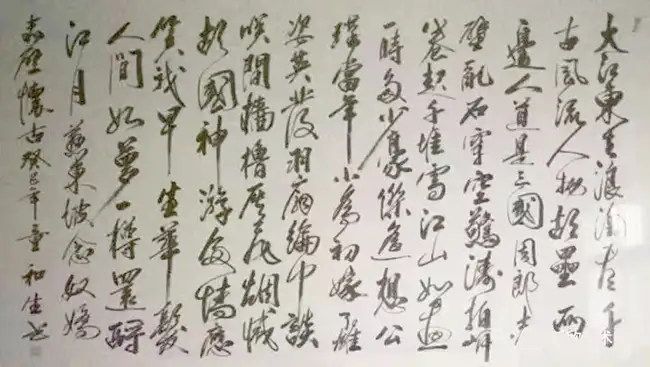 大江東去浪淘尽千
古風流人物故壘西
邊人道是三國周郎赤
壁乱石穿空驚濤拍岸
卷起千堆雪江山如畫
一時多少豪傑遥想公
瑾當年小喬初嫁雄
姿英發羽扇綸巾談
笑間檣櫓灰飛烟滅
故國神游多情應
笑我早生華髮
人間如夢一樽還酹
江月 蘇東坡念奴嬌
赤壁懷古癸巳年 和生书
术